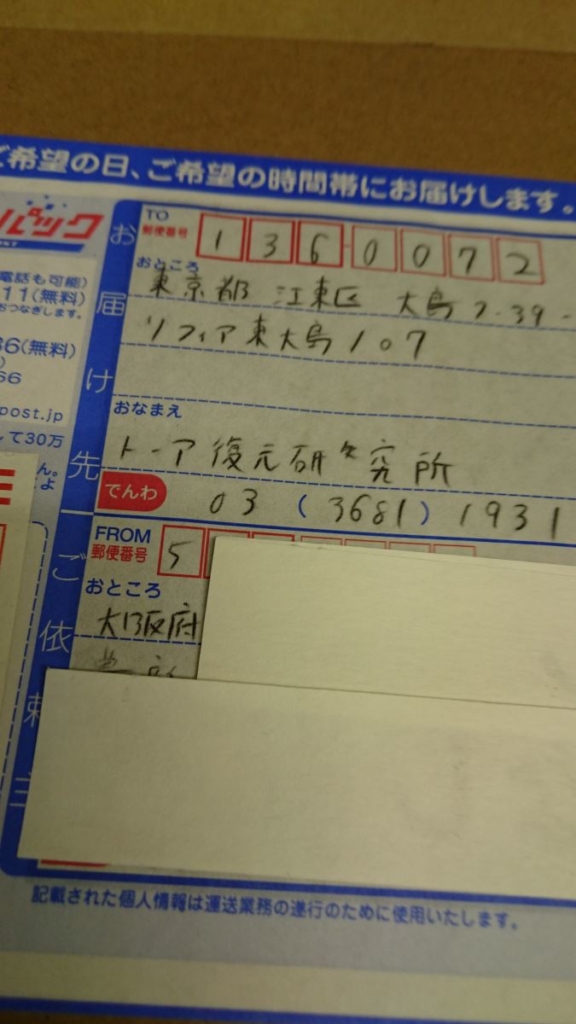 ご希望の日、ご希望の時間帯にお届けします。
パック
POST
電話も可能)
11(無料)
おつなぎします。
36(無料)
)
66
post.jp
して30万
ん。
お届け先
TO
郵便番号
136-0072
おところ
東京都 江東区 大島 7-39-
ソフィア東大島107
おなまえ
トーア復元研究所
でんわ
03(3681)1931
ご依頼主
FROM
郵便番号
5
おところ
大阪府
記載された個人情報は運送業務の遂行のために使用いたします。